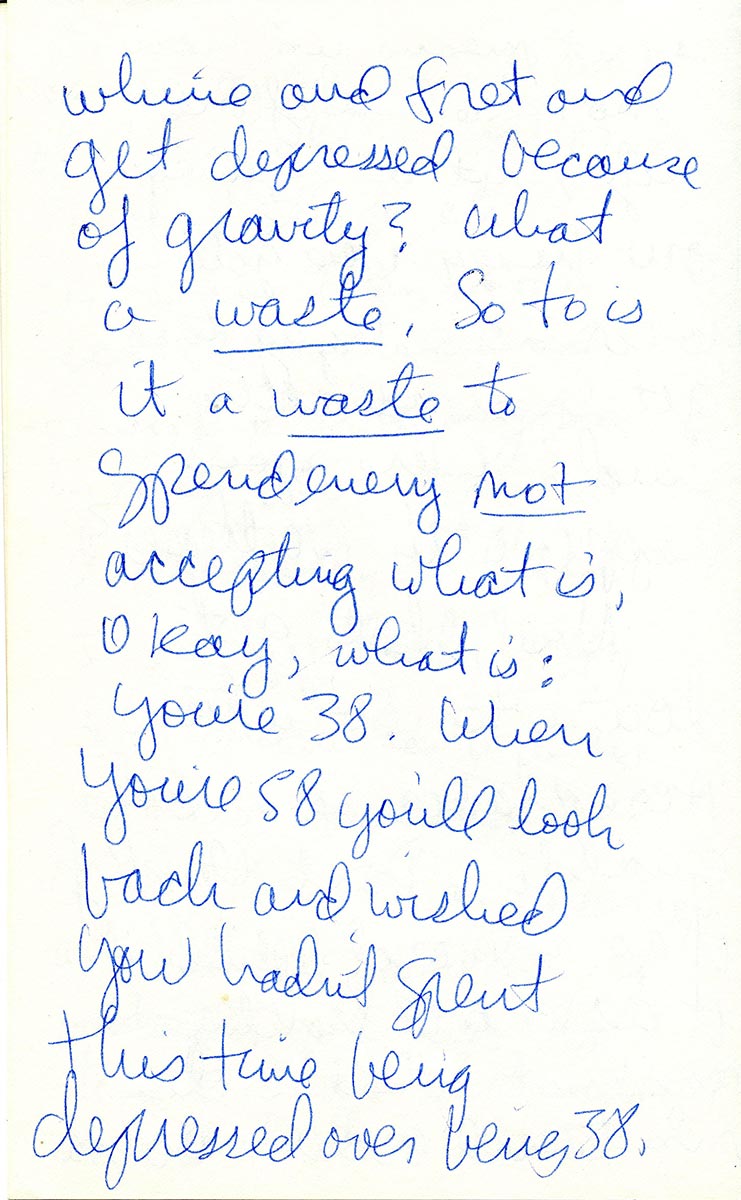 whine and fret and
get depressed because
of gravity? What
a waste. So to is
it a waste to
spend energy not
accepting what is,
Okay, what is:
You're 38. When
you're 58 you'll look
back and wished
you hadn't spent
this time being
depressed over being 38.